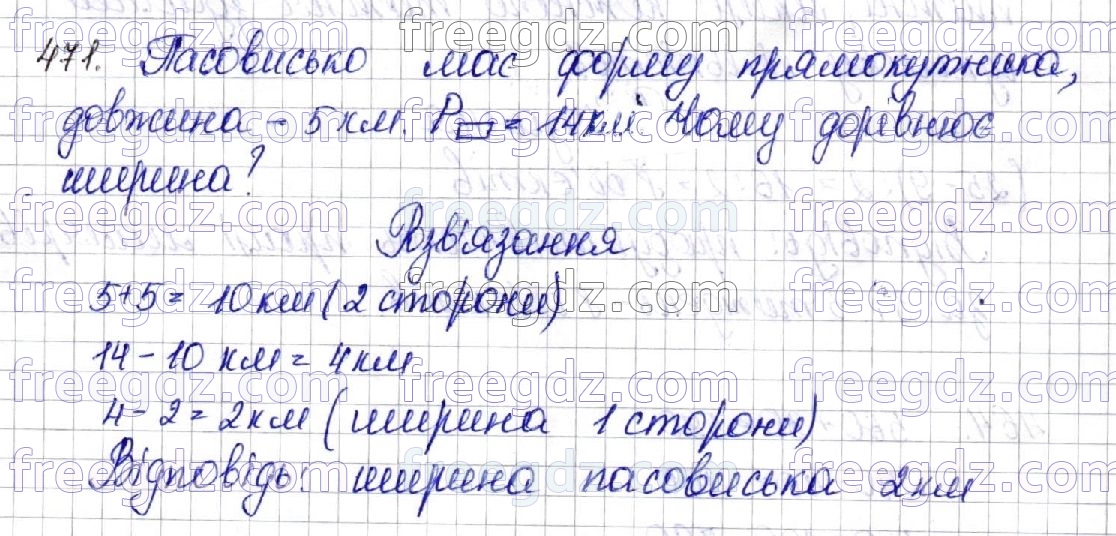 471. Пасовисько має форму прямокутника,
довжина - 5 км. P▭ = 14км Чому дорівнює
ширина?
Розв'язання
5+5= 10км (2 сторони)
14 - 10 км = 4км
4 - 2 = 2км (ширина 1 сторони)
Відповідь: ширина пасовиська 2км